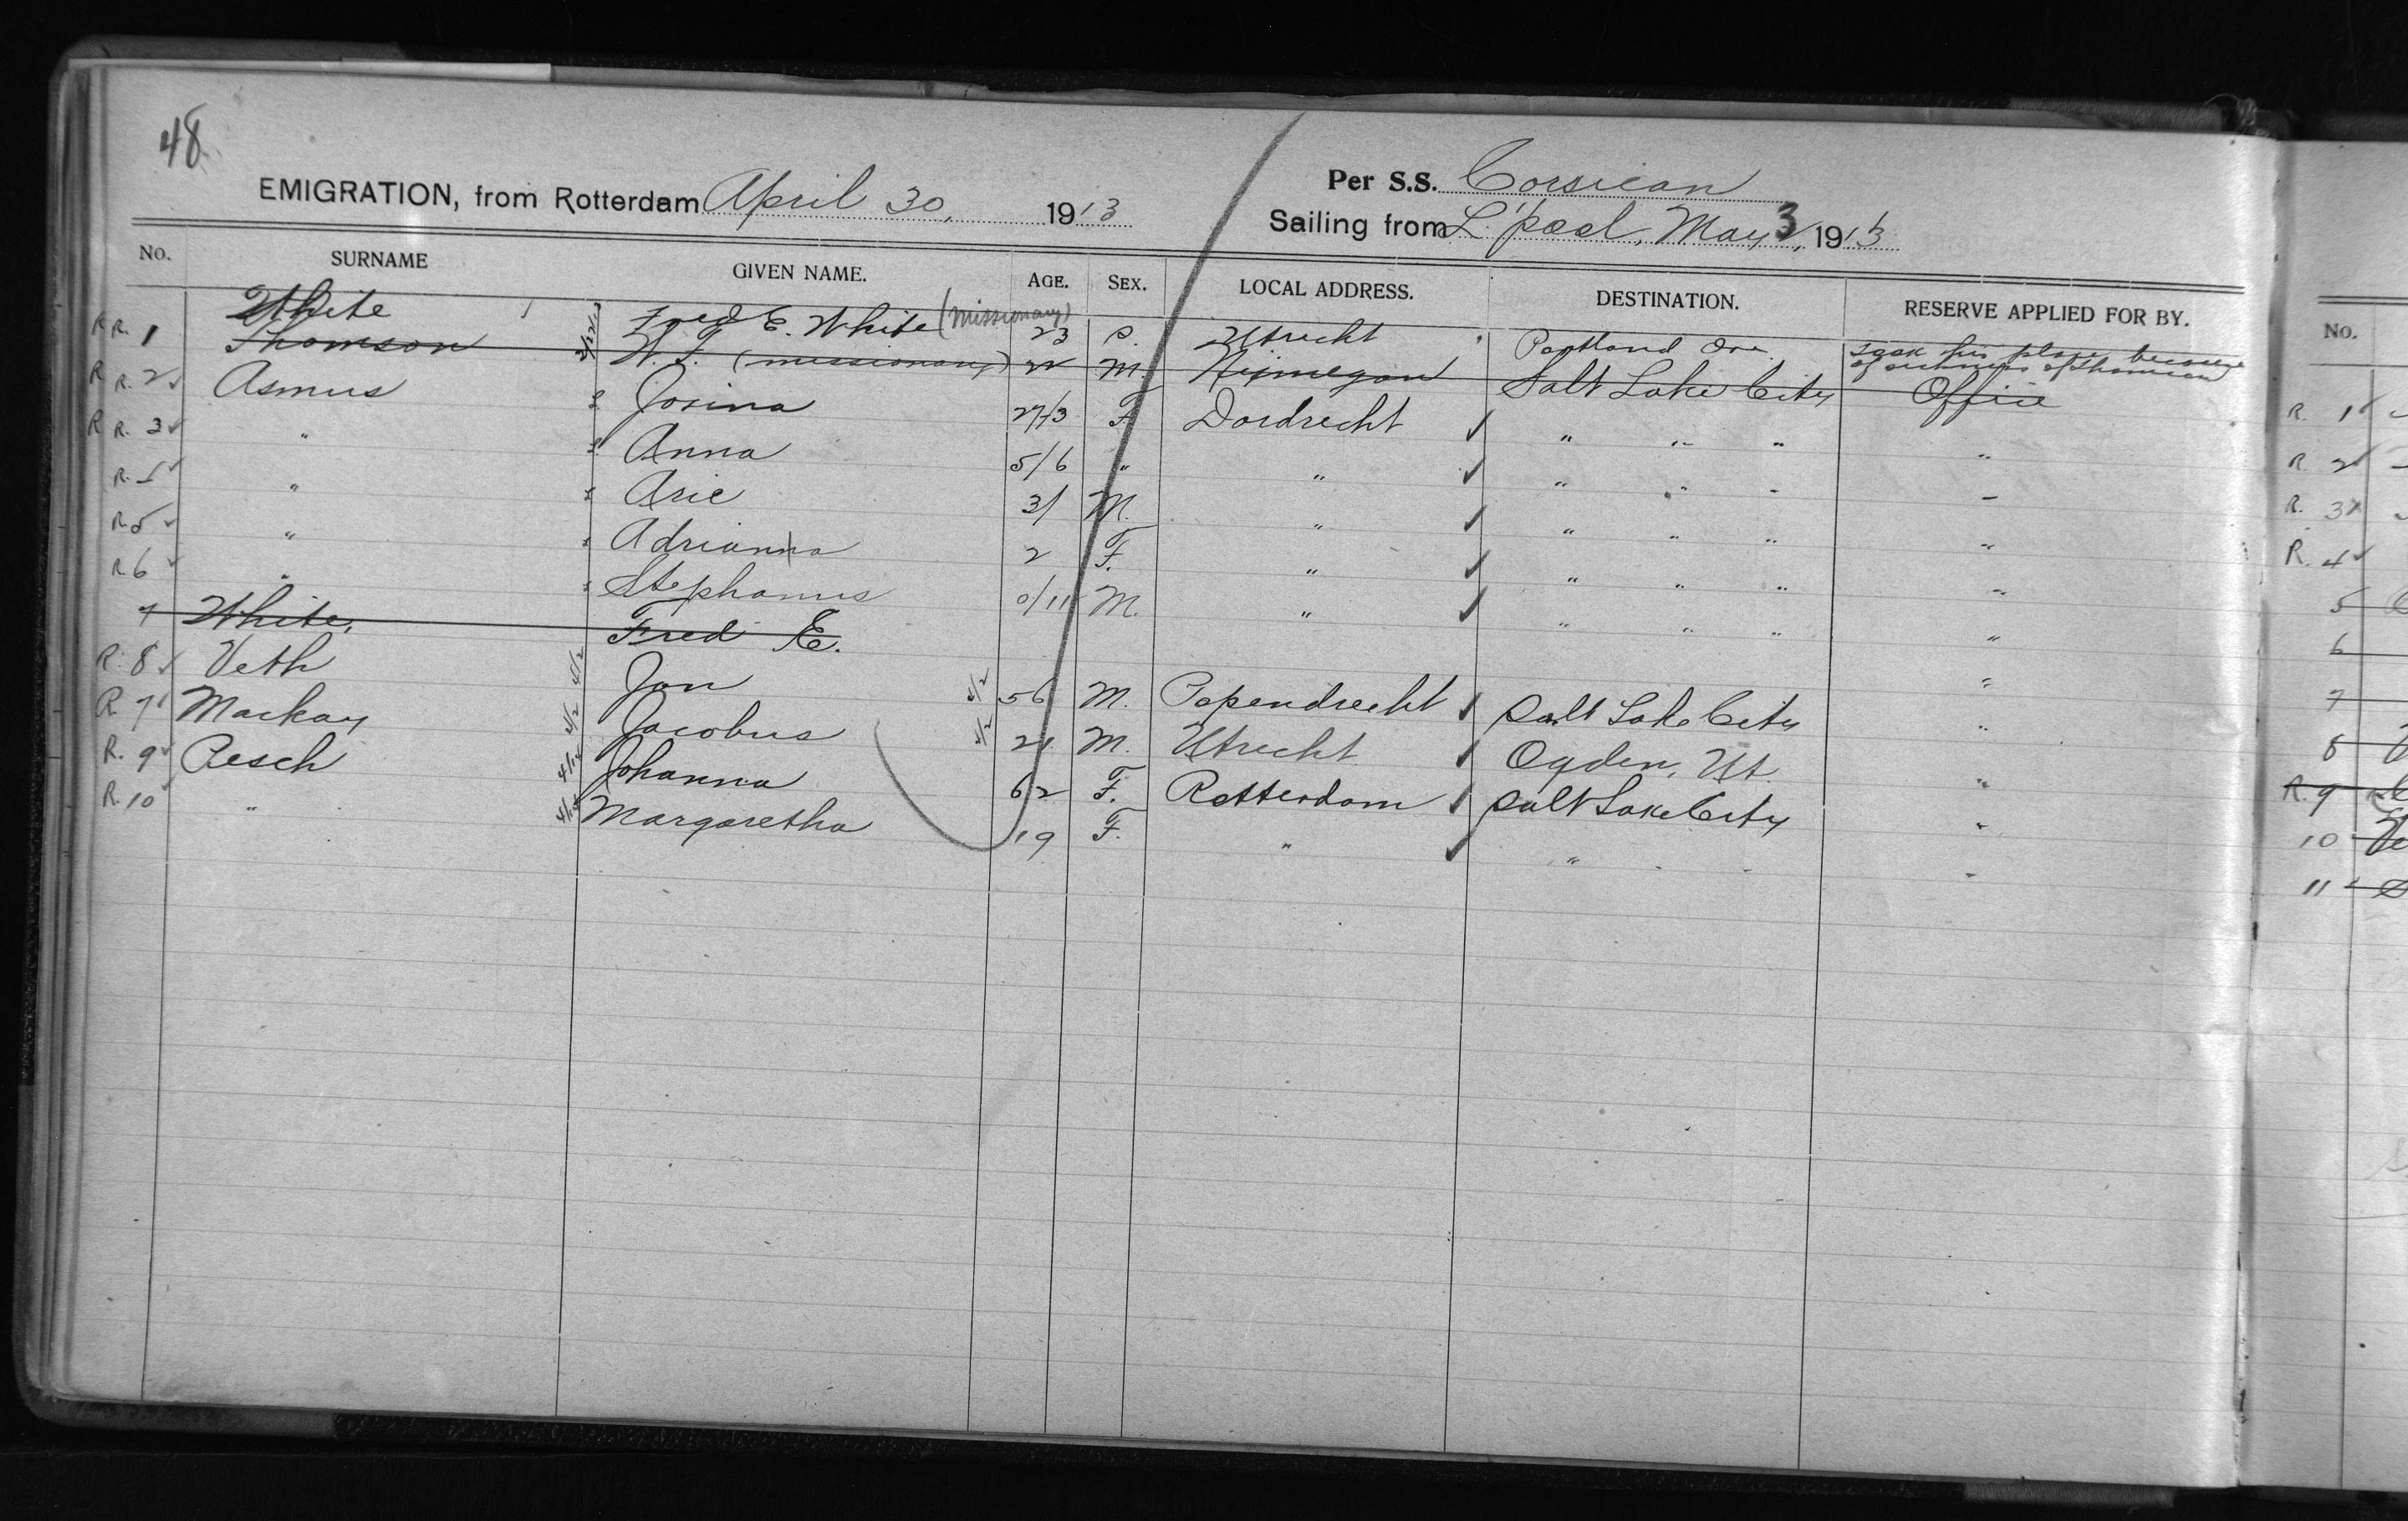 48
EMIGRATION, from Rotterdam April 30, 1913
Per S.S. Corsican
Sailing from L'pool, May 3, 1913
No. SURNAME GIVEN NAME. AGE. SEX. LOCAL ADDRESS. DESTINATION. RESERVE APPLIED FOR BY.
White Fred E. White (missionary) 23 Utrecht Portland Ore. took his place because
R R. 1 Thomson W. F. (missionary) 22 M. Nijmegen Salt Lake City of sickness of Thomson Office
R R. 2 Asmus Josina 27/3 F Dordrecht " " " "
R R. 3 " Anna 5/6 " " " " " "
R. 4 " Arie 3/ M. " " " " "
R. 5 " Adrianna 2 F. " " " " "
R. 6 " Stephanus 0/11 M. " " " " "
7 White. Fred E.
R. 8 Veth 4/2 Jan 4/2 56 M. Papendrecht Salt Lake City "
R. 7 Mackay 4/2 Jacobus 4/2 21 M. Utrecht Ogden, Ut. "
R. 9 Resch 4/14 Johanna 62 F. Rotterdam Salt Lake City "
R. 10 " 4/14 Margaretha 19 F. " " " " "
No.
R. 1
R. 2
R. 3
R. 4
5
6
7
8
R. 9
10
11